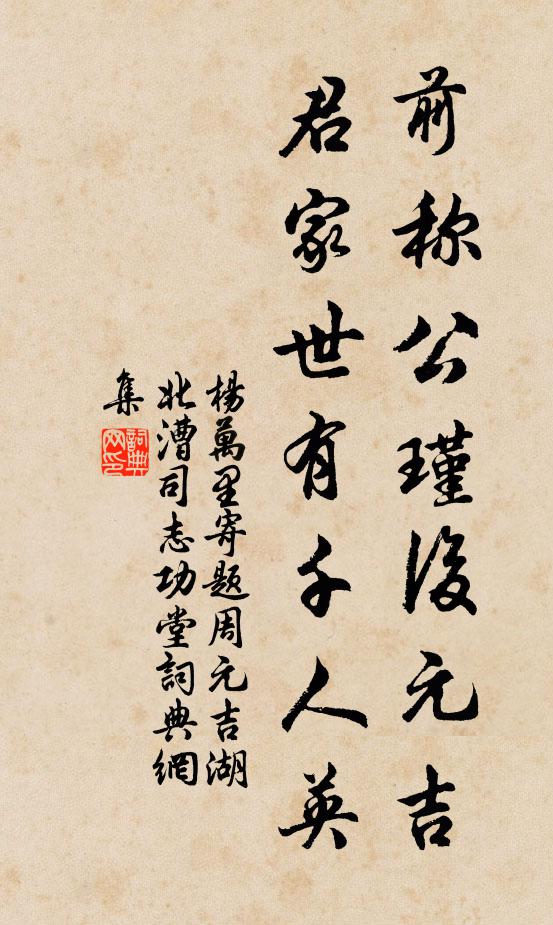 前称公瑾後元吉
君家世有千人英
楊萬里寄題周元吉湖
北漕司志功堂詞典網
集
詞典網印